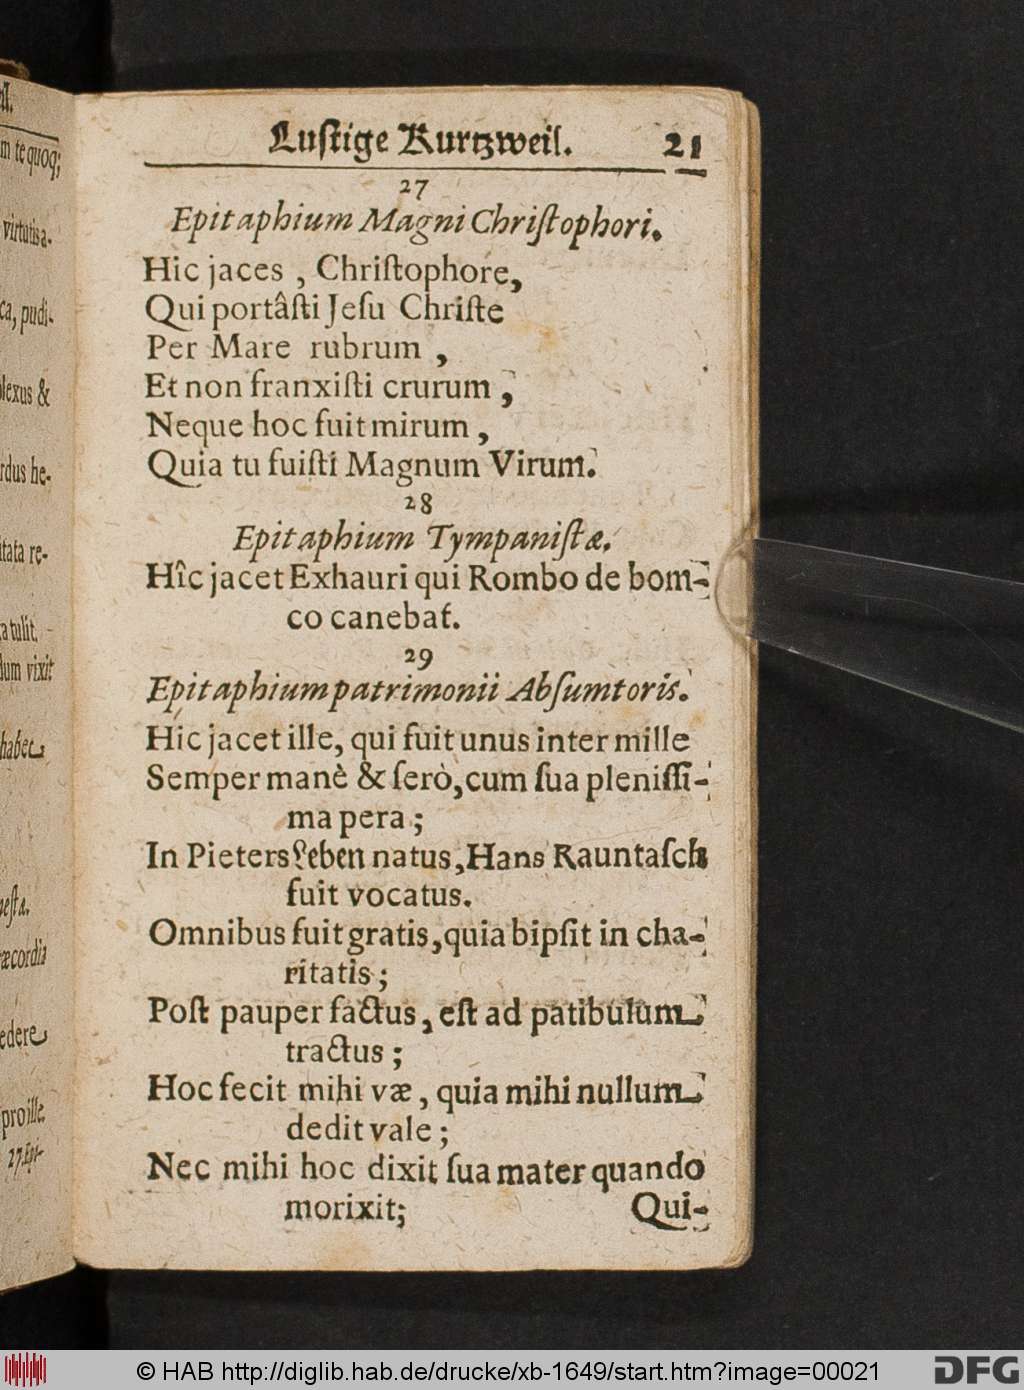 il.
m te quoq;
virtutis a-
ca, pudi-
plexus &
rdus he-
itata re-
ta tulit.
dum vixit
habet
æcordia
edere
pro ille.
27. Epi-
Luſtige Kurtzweil. 21
27
Epitaphium Magni Chriſtophori.
Hic jaces, Chriſtophore,
Qui portâſti Jeſu Chriſte
Per Mare rubrum,
Et non franxiſti crurum,
Neque hoc fuit mirum,
Quia tu fuiſti Magnum Virum.
28
Epitaphium Tympaniſtæ.
Hîc jacet Exhauri qui Rombo de bom-
co canebat.
29
Epitaphium patrimonii Abſumtoris.
Hic jacet ille, qui fuit unus inter mille
Semper manè & ſerò, cum ſua pleniſſi-
ma pera;
In Pietersleben natus, Hans Rauntaſch
fuit vocatus.
Omnibus fuit gratis, quia bipſit in cha-
ritatis;
Poſt pauper factus, eſt ad patibulum
tractus;
Hoc fecit mihi væ, quia mihi nullum
dedit vale;
Nec mihi hoc dixit ſua mater quando
morixit;
Qui-
© HAB http://diglib.hab.de/drucke/xb-1649/start.htm?image=00021
DFG